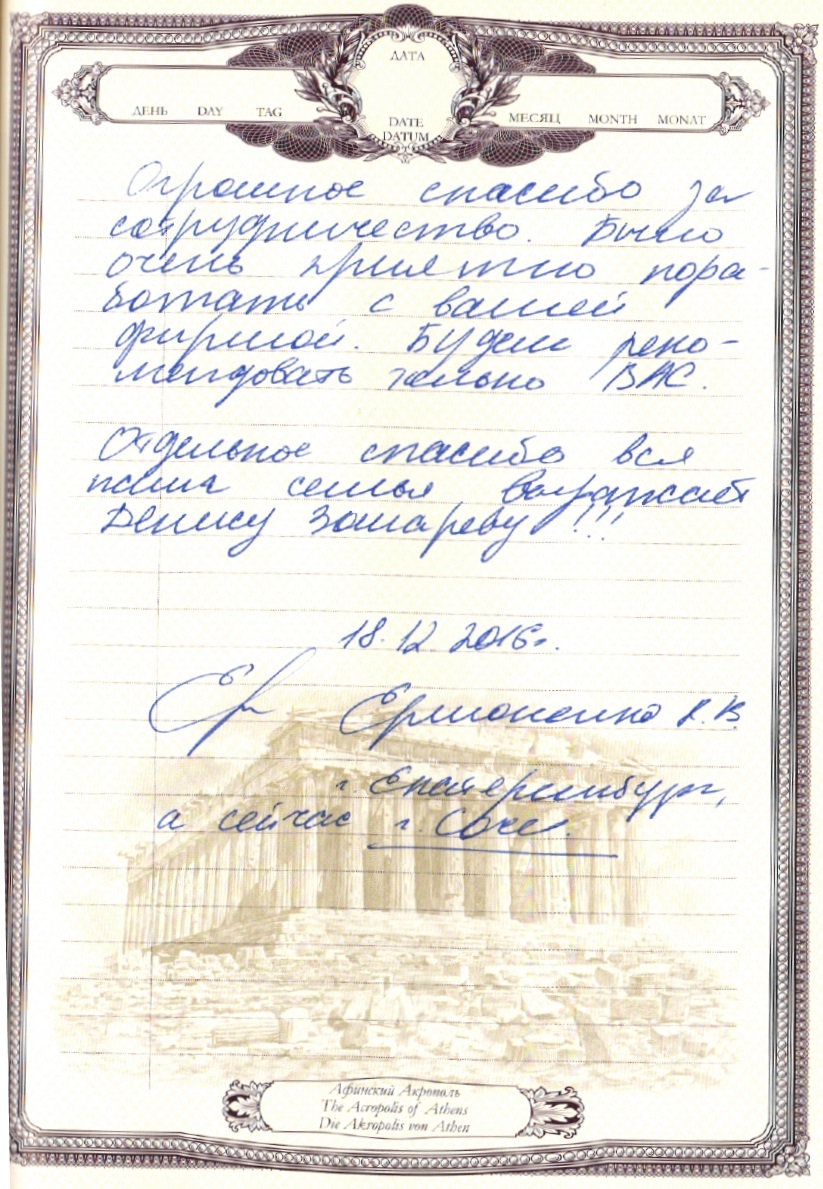 ДАТА
ДЕНЬ DAY TAG
DATE
DATUM
МЕСЯЦ MONTH MONAT
Огромное спасибо за
сотрудничество. Было
очень приятно пора-
ботать с вашей
фирмой. Будем реко-
мендовать только ВАС.
Отдельное спасибо вся
наша семья выражает
Денису !!!
18.12.2016г.
г. Екатеринбург,
а сейчас г. Сочи.
Афинский Акрополь
The Acropolis of Athens
Die Akropolis von Athen